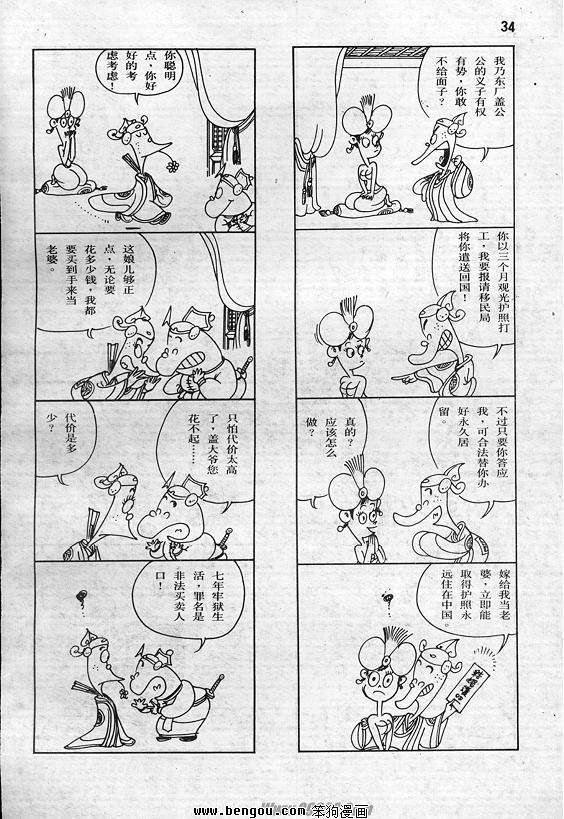 34
我乃东厂盖公
公的义子有权
有势，你敢
不给面子？
你以三个月观光护照打
工，我要报请移民局
将你遣送回国！
不过只要你答应
我，可合法替你办
好永久居
留。
真的？
应该怎么
做？
嫁给我当老
婆，立即能
取得护照永
远住在中国。
你聪明
点，你好
好的考
虑考虑！
这娘儿够正
点，无论要
花多少钱，我都
要买到手来当
老婆。
只怕代价太高
了，盖大爷您
花不起……
代价是多
少？
七年牢狱生
活，罪名是
非法买卖人
口！
www.bengou.com 笨狗漫画